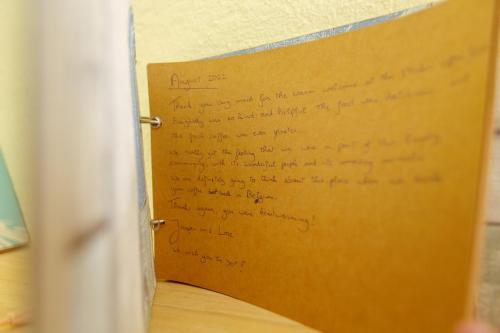 August 2022
Thank you very much for the warm welcome at the
Everybody was so kind and helpful. The food was delicious and
the fresh coffee was even greater.
We really got the feeling that we were a part of this
community, with its wonderful people and its amazing
We are definitely going to think about this place when we
coffee back in Belgium.
Thanks again, you were heartwarming!
and
we wish you